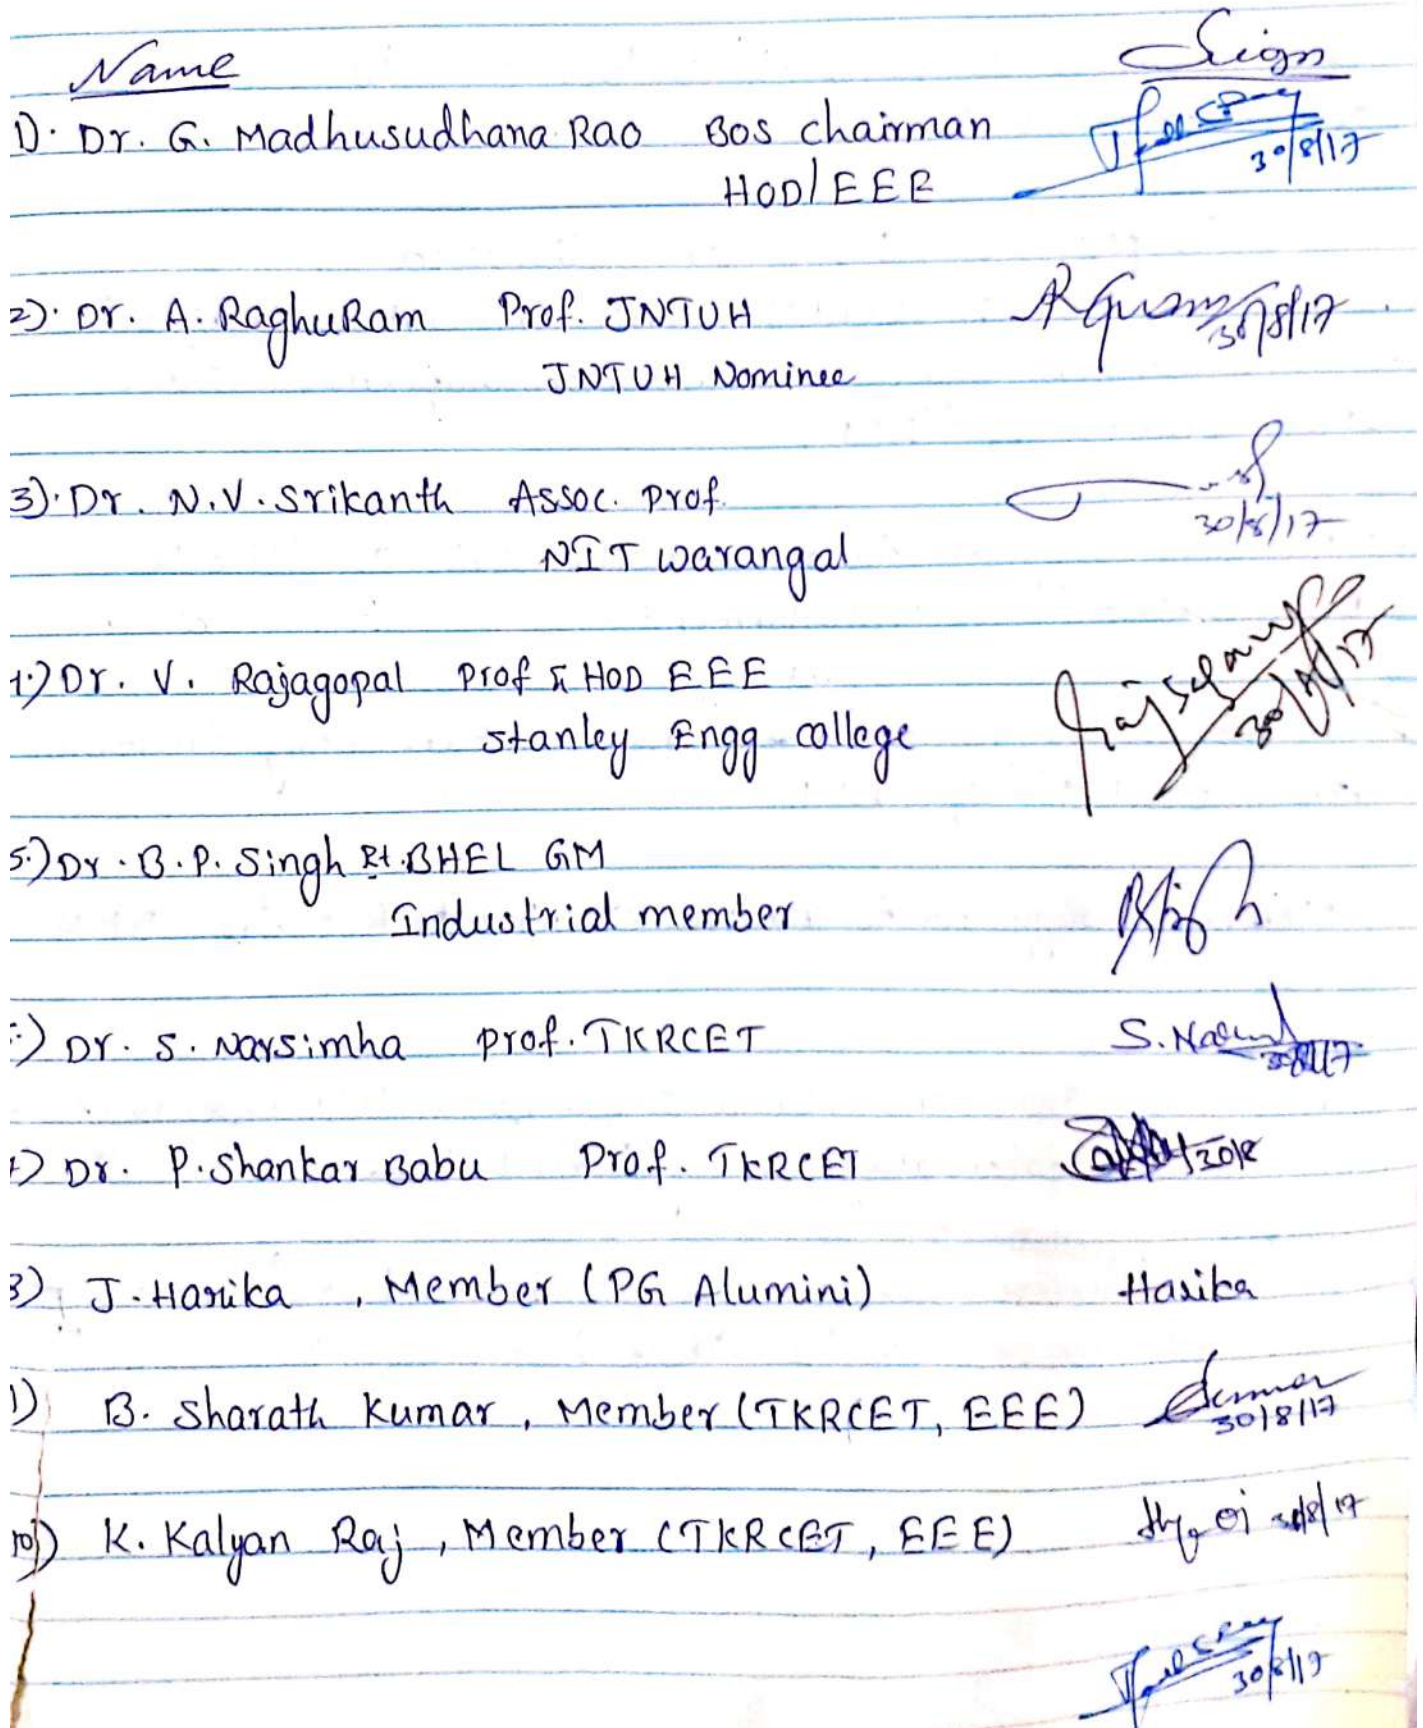 Name Sign
1). Dr. G. Madhusudhana Rao BOS chairman
HOD/EEE 30/8/17
2). Dr. A. RaghuRam Prof. JNTUH 30/8/17
JNTUH Nominee
3). Dr. N.V. Srikanth Assoc. Prof.
NIT Warangal 30/8/17
) Dr. V. Rajagopal Prof & HOD EEE
Stanley Engg college
5.) Dr. B.P. Singh Rt. BHEL GM
Industrial member
) Dr. S. Narsimha Prof. TKRCET S. 30/8/17
) Dr. P. Shankar Babu Prof. TKRCET 30/8
) J. Harika, Member (PG Alumini) Harika
) B. Sharath Kumar, Member (TKRCET, EEE)
30/8/17
10) K. Kalyan Raj, Member (TKRCET, EEE) 30/8/17
30/8/17